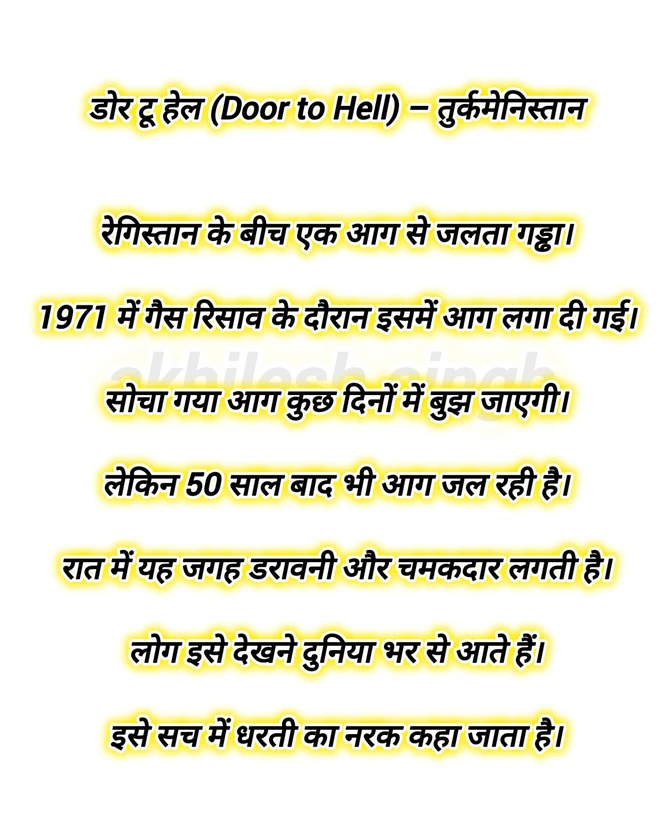 डोर टू हेल (Door to Hell) – तुर्कमेनिस्तान
रेगिस्तान के बीच एक आग से जलता गड्ढा।
1971 में गैस रिसाव के दौरान इसमें आग लगा दी गई।
akhilesh singh
सोचा गया आग कुछ दिनों में बुझ जाएगी।
लेकिन 50 साल बाद भी आग जल रही है।
रात में यह जगह डरावनी और चमकदार लगती है।
लोग इसे देखने दुनिया भर से आते हैं।
इसे सच में धरती का नरक कहा जाता है।